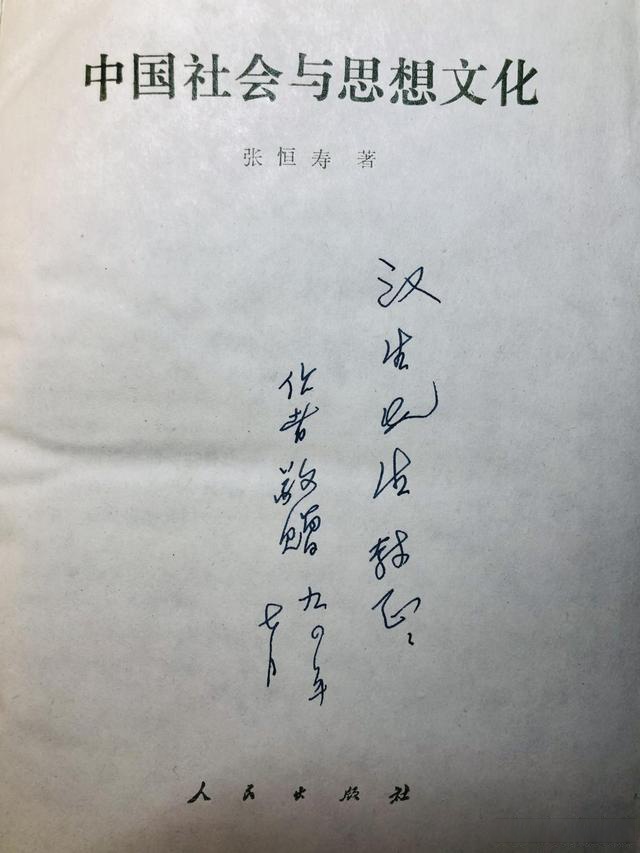 中国社会与思想文化
张恒寿 著
汉生先生教正
作者敬赠 九〇年
七月
人民出版社